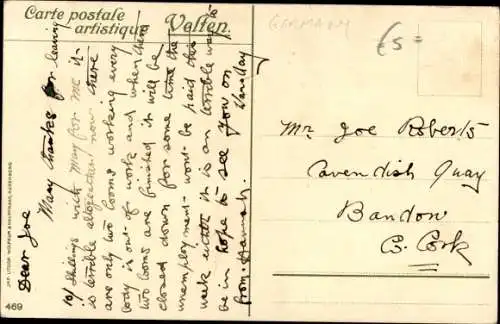 Carte postale
artistique
Velten
GERMANY
£5=
Dear Joe
Many thanks for leaving
10/ shillings with May for me it
is terrible altogether now there
are only two looms working every
body is out-of work and when these
two looms are finished it will be
closed down for some time the
unemployment wont be paid this
week either it is an terrible
be in hope to see you on
Sunday
from Hannah
Mr Joe Roberts
Cavendish Quay
Bandon
Co. Cork
469